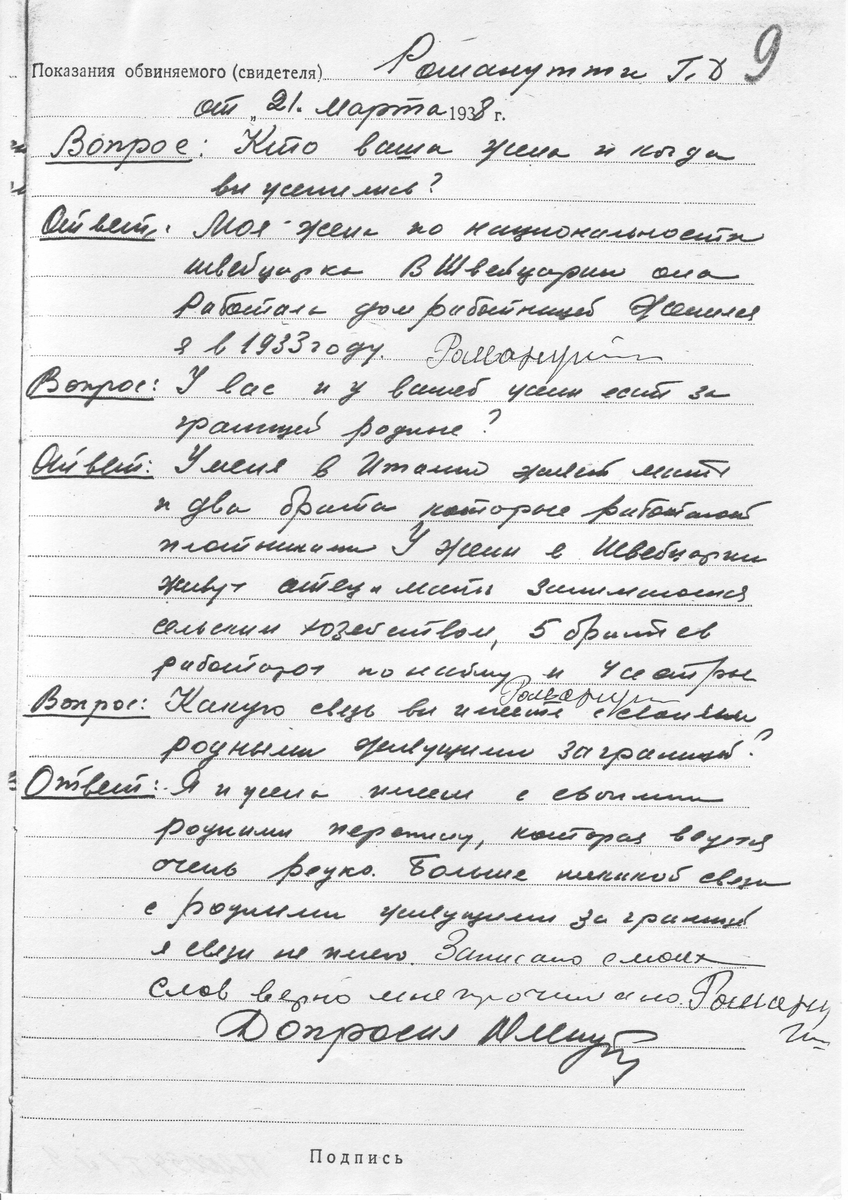 9
Показания обвиняемого (свидетеля) Романутти Г.Д
от „21. марта 1938 г.
Вопрос: Кто ваша жена и когда
вы женились?
Ответ: Моя жена по национальности
швейцарка В Швейцарии она
работала домработницей Женился
я в 1933 году. Романутти
Вопрос: У вас и у вашей жены есть за
границей родные?
Ответ: У меня в Италии живет мать
и два брата которые работают
плотниками У жены в Швейцарии
живут отец и мать занимаются
сельским хозяйством, 5 братьев
работают по найму и 4 сестры
Романутти
Вопрос: Какую связь вы имеете с своими
родными живущими за границей?
Ответ: Я и жена имеем с своими
родными переписку, которая ведется
очень редко. Больше никакой связи
с родными живущими за границей
я связи не имею. Записано с моих
слов верно мне прочитано. Романутти
Допросил
Подпись